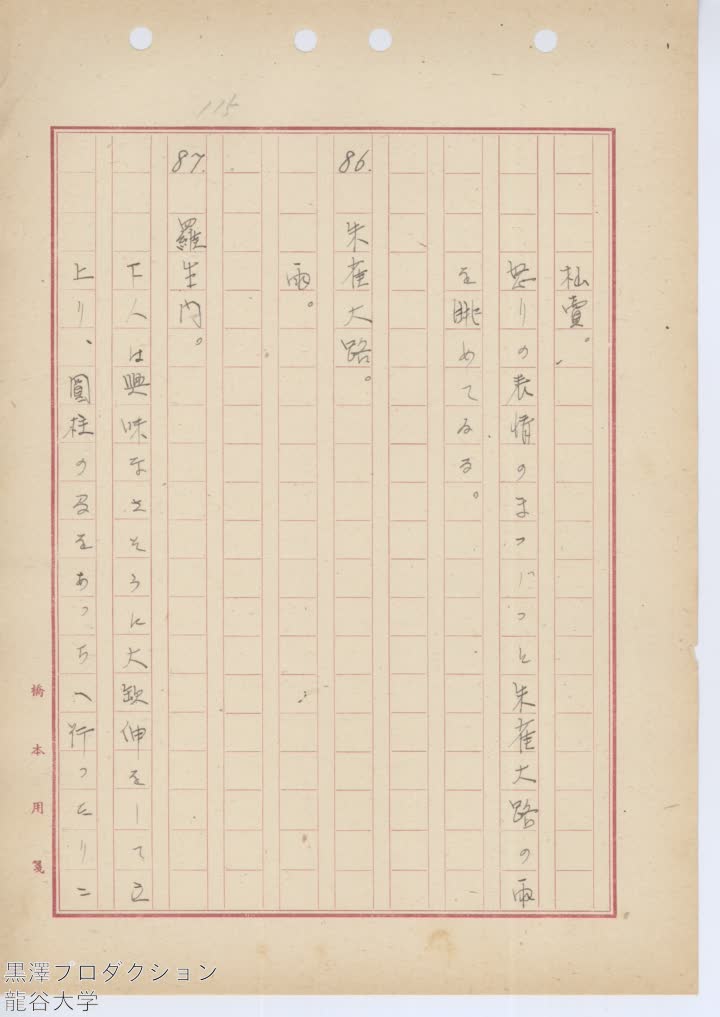 115
杣賣。
怒りの表情のまゝじっと朱雀大路の雨
を眺めてゐる。
86. 朱雀大路。
雨。
87. 羅生門。
下人は興味なさそうに大缺伸をして立
上り、圓柱のをあっちへ行ったりこ
橋本用箋
黒澤プロダクション
龍谷大学